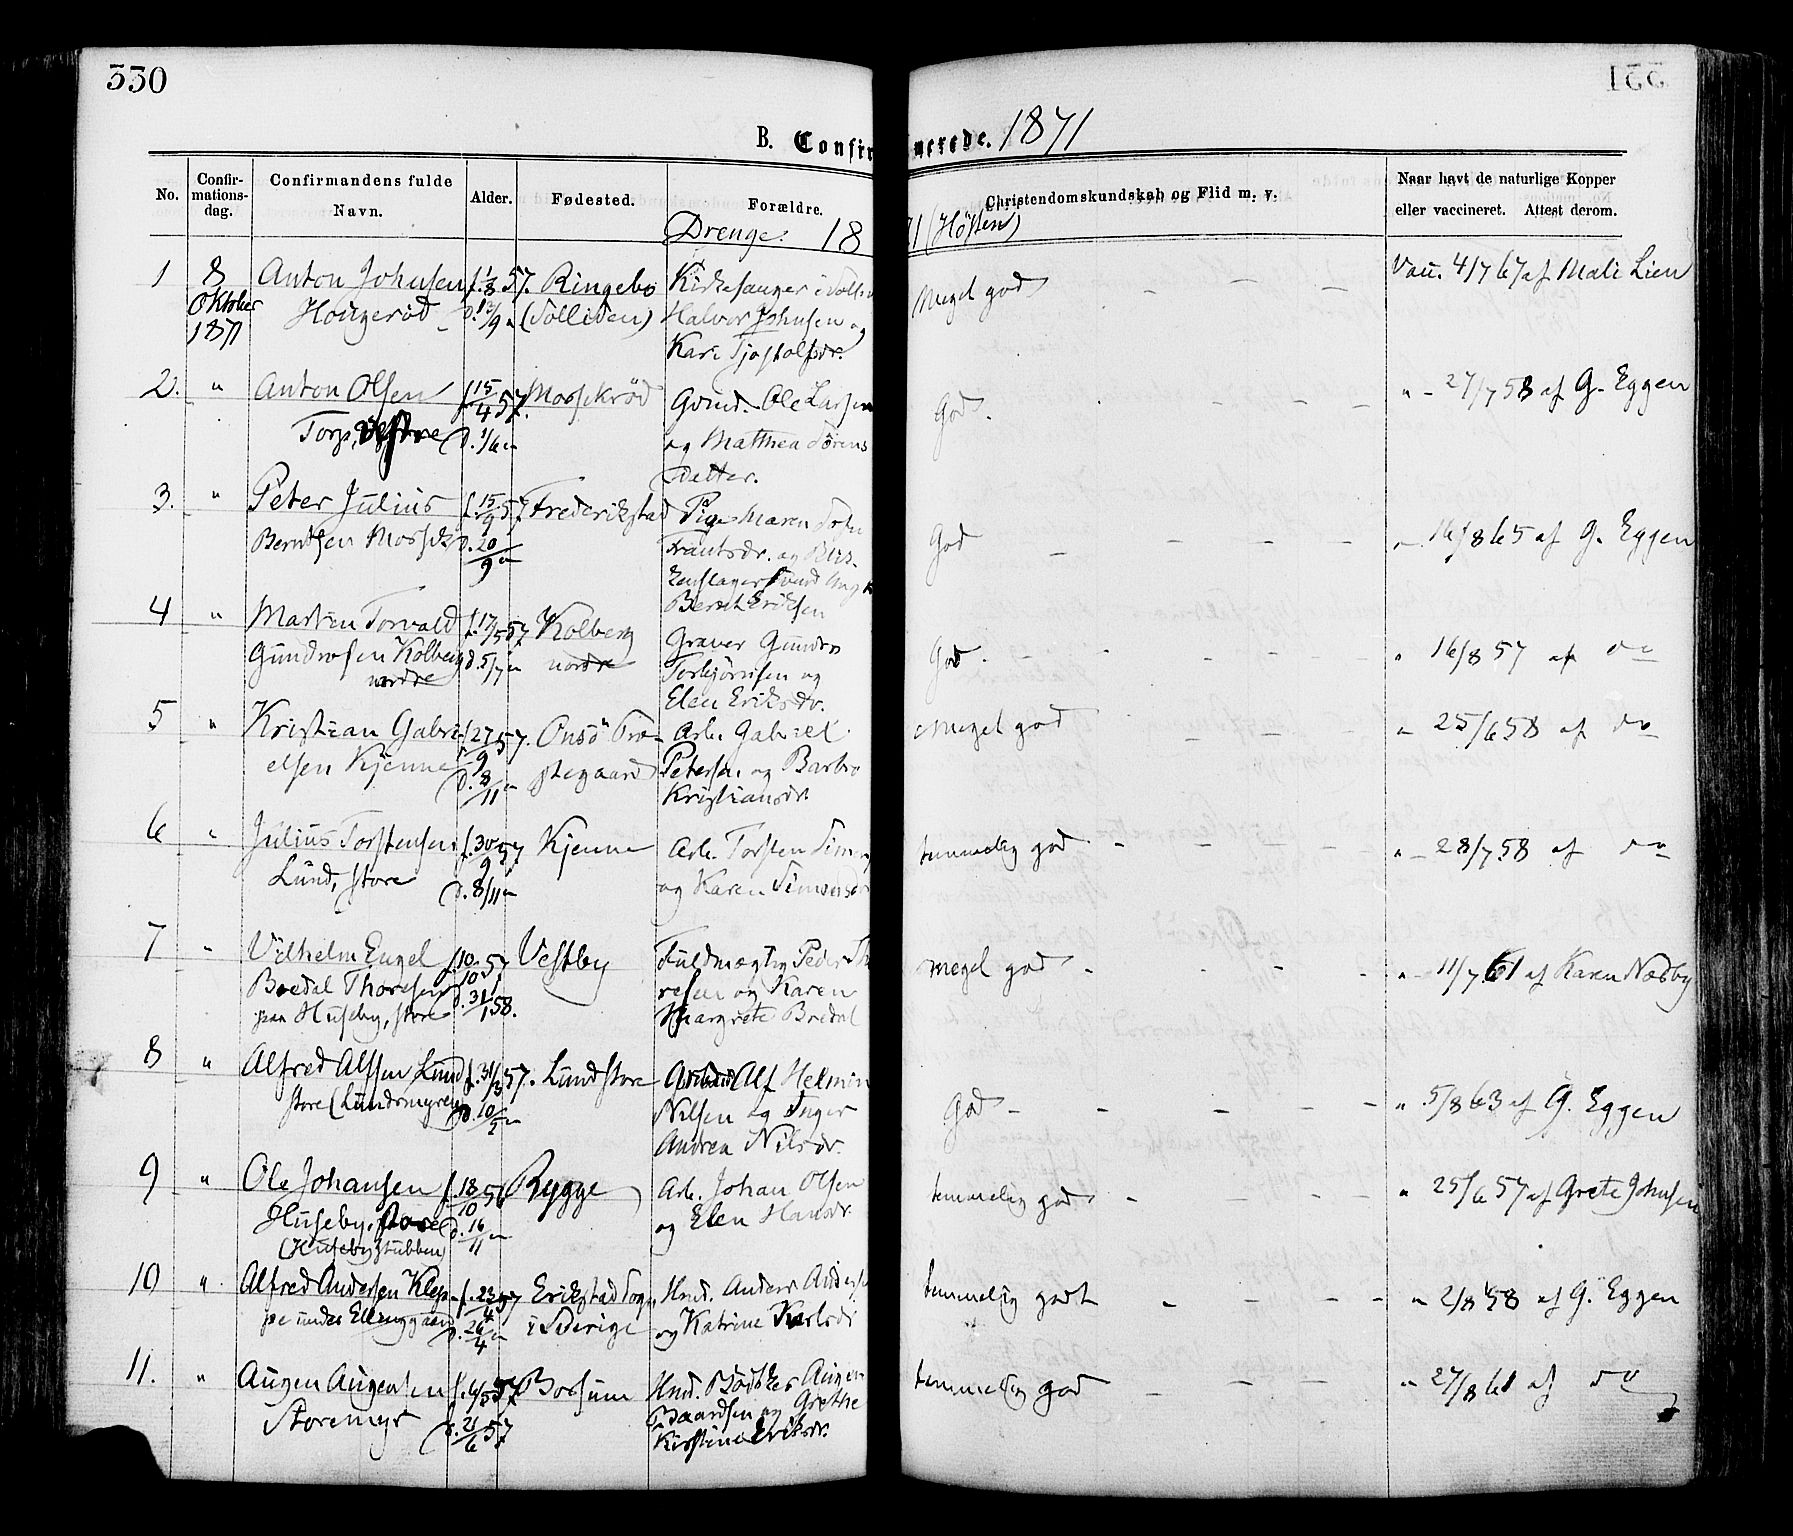 330
B. Confir
merede. 1871
No. Confirmations-dag. Confirmandens fulde Navn. Alder. Fødested. Forældre. Christendomskundskab og Flid m. v. Naar havt de naturlige Kopper eller vaccineret. Attest derom.
Drenge. 18 71 (Høsten)
1 8 Anton Johnsen f. 1/8 57. Ringebo Kirkesanger i Solli Meget god Vac. 4/7 67 af Mali Lien
Oktober Hougerød d. 13/9 " (Solliden) Halvor Johnsen og
1871 Kari Tjostolfsdr.
2. " Anton Olsen f. 15/4 57. Mossekrød Gmd. Ole Larsen God. " - 27/7 58 af G. Eggen
Torp, d. 1/6 " og Mathea Sørens
Datter.
3. " Peter Julius f. 15/9 57. Frederikstad Pige Maren Sofi God " 16/8 65 af G. Eggen
Berntsen d. 20/9 " Frantsdr. og
Bernt Eriksen
4 " Martin Torvald f. 17/5 57 Kolberg Graver Gunder God. " 16/8 57 af do
Gundersen Kolberg d. 5/7 " nordre Torbjørnsen og
nordre Elen Eriksdr.
5 " Kristian Gabri- f. 27/9 57. Onsö Præ- Arb. Gabriel Meget god " 25/6 58 af do
elsen Kjenne d. 8/11 " stegaard Petersen og Barbro
Kristiansdr.
6 " Julius Torstensen f. 30/9 57 Kjenne Arb. Torsten Simen temmelig god " - 28/7 58 af do
Lund, store d. 8/11 " og Karen Simensdr
7 " Vilhelm Engel f. 10/10 57 Vestby Fuldmægtig Peder Th meget god " - 11/7 61 af Karen Næsby
Bredal Thoresen d. 31/1 58. resen og Karen
paa Huseby, store Margrete Bredal
8 " Alfred Alfsen Lund f. 31/3 57. Lund store Alf Helmin God " 5/8 63 af G. Eggen
store (Lundsmyren) d. 10/5 " Nilsen og Inger
Andrea Nilsdr.
9 " Ole Johansen f. 18/10 56 Rygge Arb. Johan Olsen temmelig god " 25/6 57 af Grete Johnsen
Huseby, store d. 16/11 " og Elen Hansdr.
(Husebystubben)
10 " Alfred Andersen Klep- f. 23/4 57 Erikstad Sogn Hmd. Anders Anders temmelig godt " 2/8 58 af G. Eggen
pe under Elinggaard d. 26/4 " i Sverige og Katrine Karlsdr
11. " Augen Augensen f. 6/5 57 Borsum Hmd. Bødker Augen temmelig god " 27/8 61 af do
Storemyr d. 21/6 57 Baardsen og Grethe
Kirstine Eriksdr.